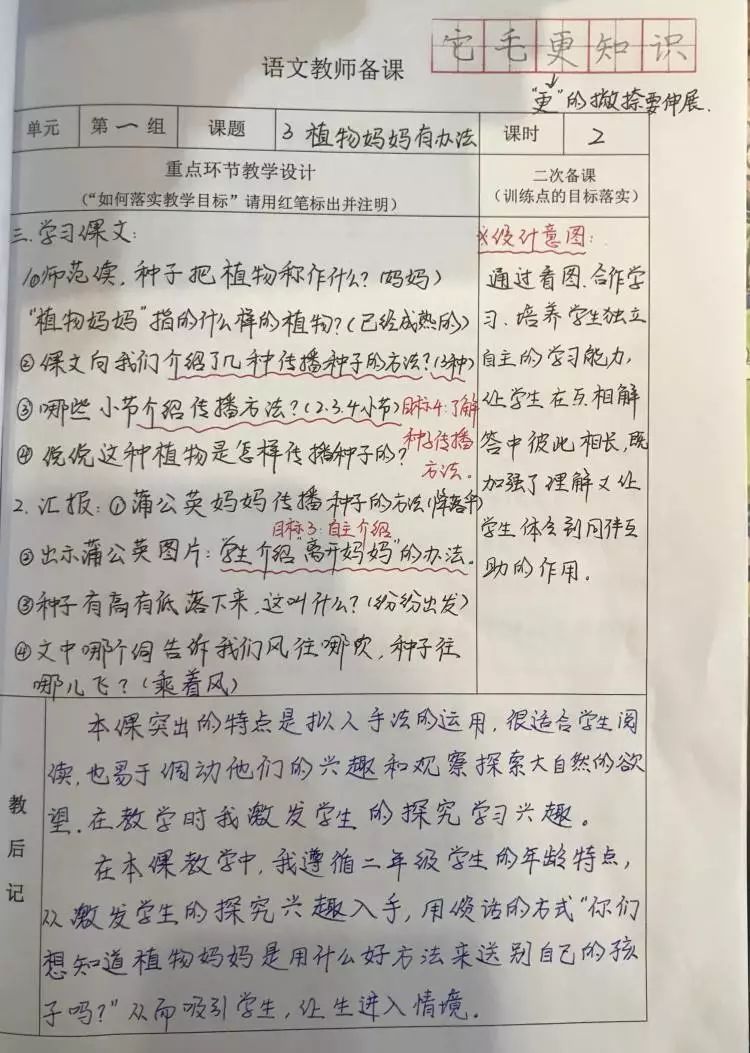 它毛更知识
语文教师备课
"更"的撇捺要伸展.
单元 第一组 课题 3 植物妈妈有办法 课时 2
重点环节教学设计
("如何落实教学目标"请用红笔标出并注明)
二次备课
(训练点的目标落实)
三.学习课文:
1.①师范读,种子把植物称作什么?(妈妈)
"植物妈妈"指的什么样的植物?(已经成熟的)
②课文向我们介绍了几种传播种子的方法?(3种)
③哪些小节介绍传播方法?(2.3.4小节)
目标4:了解
种子传播
方法.
④说说这种植物是怎样传播种子的?
2.汇报:①蒲公英妈妈传播种子的方法(降落伞)
目标3:自主介绍
②出示蒲公英图片:学生介绍"离开妈妈"的办法.
③种子有高有低落下来,这叫什么?(纷纷出发)
④文中哪个词告诉我们风往哪吹,种子往
哪儿飞?(乘着风)
※设计意图:
通过看图.合作学
习、培养学生独立
自主的学习能力,
让学生在互相解
答中彼此相长,既
加强了理解又让
学生体会到同伴互
助的作用。
教后记
本课突出的特点是拟人手法的运用,很适合学生阅
读,也易于调动他们的兴趣和观察探索大自然的欲
望.在教学时我激发学生的探究学习兴趣。
在本课教学中,我遵循二年级学生的年龄特点,
从激发学生的探究兴趣入手,用谈话的方式"你们
想知道植物妈妈是用什么好方法来送别自己的孩
子吗?"从而吸引学生,让生进入情境。